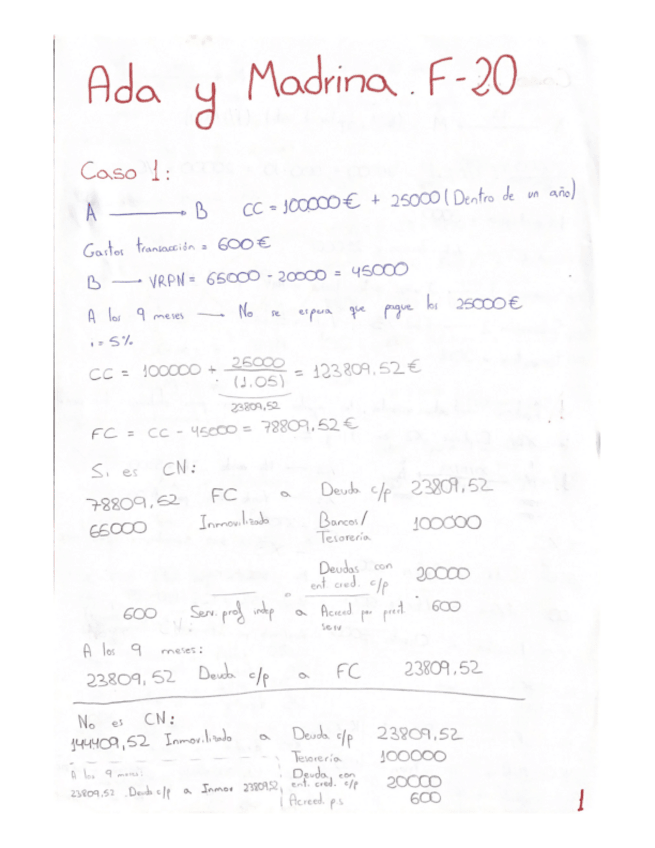 Ada y Madrina. F-20
Caso 1:
A → B CC = 100000 € + 25000 (Dentro de un año)
Gastos transacción = 600 €
B → VRPN = 65000 - 20000 = 45000
A los 9 meses → No se espera que pague los 25000 €
i = 5%
CC = 100000 + 25000 / (1.05) = 123809,52 €
23809,52
FC = CC - 45000 = 78809,52 €
Si es CN:
78809,52 FC a Deuda c/p 23809,52
65000 Inmovilizado Bancos/ 100000
Tesorería
Deudas con 20000
ent cred. c/p
600 Serv. prof indep a Acreed por prest. 600
serv
A los 9 meses:
23809,52 Deuda c/p a FC 23809,52
No es CN:
144409,52 Inmovilizado a Deuda c/p 23809,52
Tesorería 100000
A los 9 meses: Deuda con 20000
23809,52 Deuda c/p a Inmov 23809,52 ent. cred. c/p
Acreed. p.s 600
1